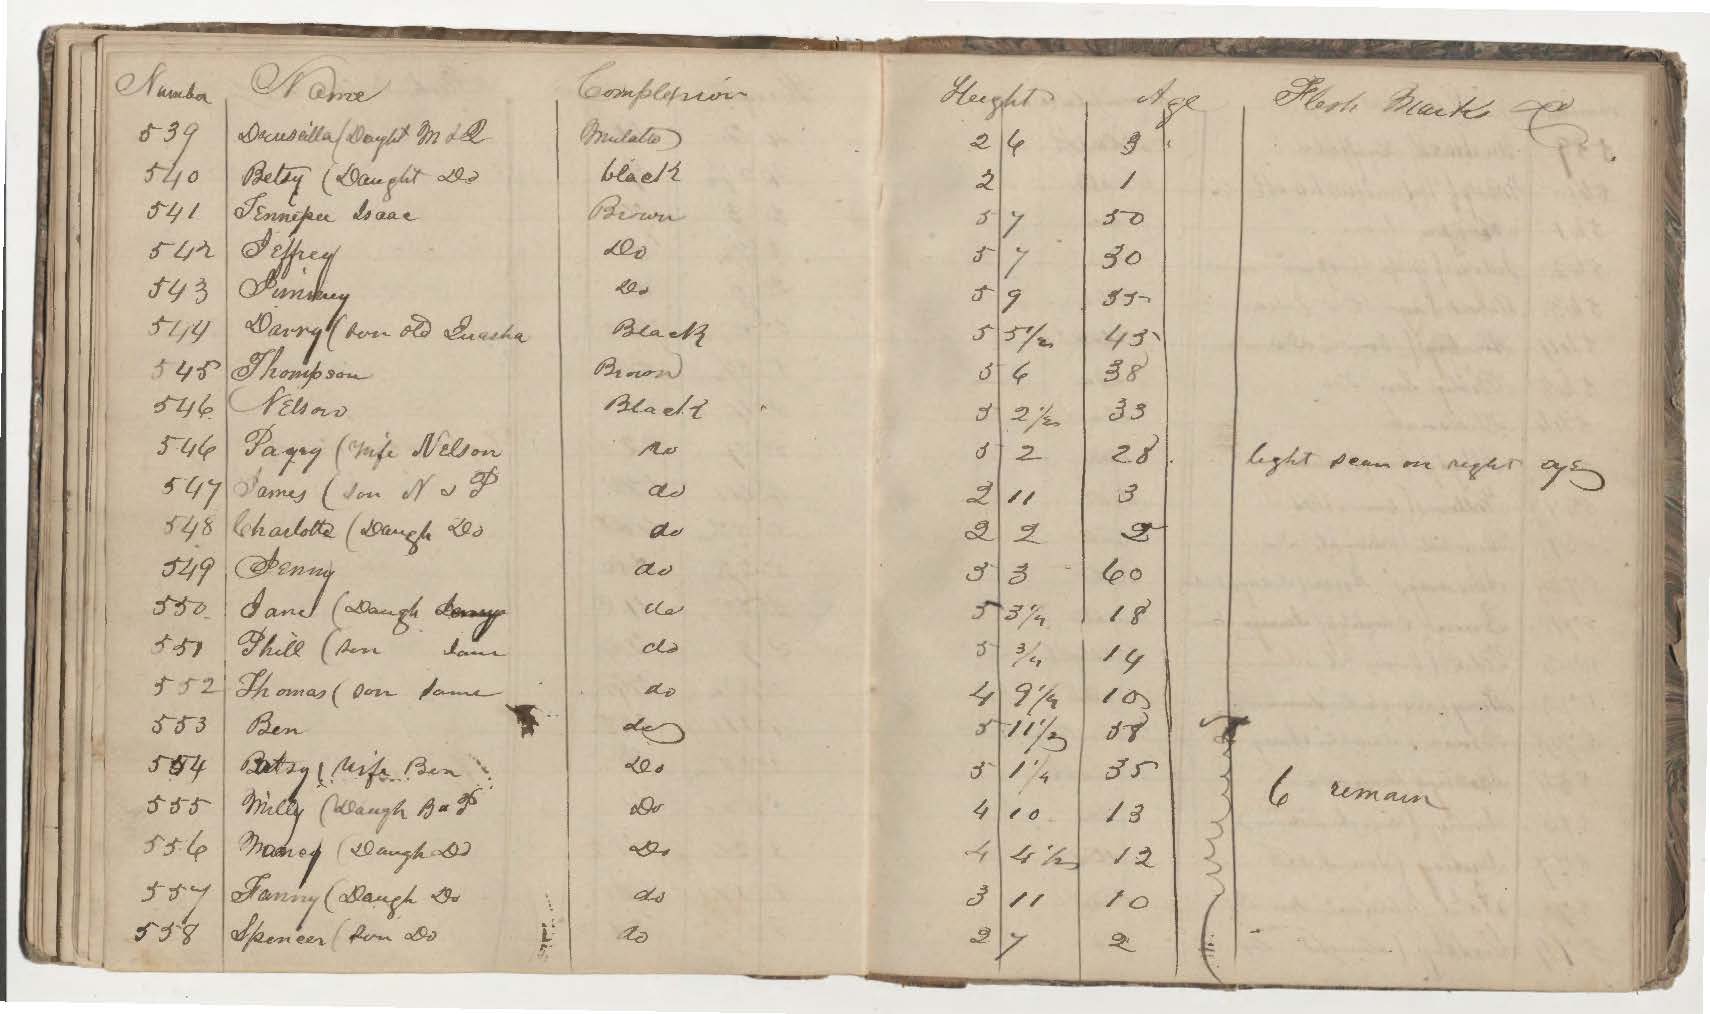 Number Name Complexion Height Age Flesh Marks &c
539 Drusilla (Daught M & Mulatto 2 6 3
540 Betsy (Daught Do black 2 1
541 Isaac Brown 5 7 50
542 Jeffrey Do 5 7 30
543 Do 5 9 35
544 Davvy (son old Quasha Black 5 5 1/2 45
545 Thompson Brown 5 6 38
546 Nelson Black 5 2 1/2 33
546 (wife Nelson do 5 2 28 light scar on right eye
547 James (son N & P do 2 11 3
548 Charlotte (Daugh Do do 2 2 2
549 Jenny do 5 3 60
550 Jane (Daugh Jenny do 5 3 1/4 18
551 Phill (son Jane do 5 3/4 14
552 Thomas (son Jane do 4 9 1/4 10
553 Ben do 5 11 1/2 58
554 Betsy (Wife Ben Do 5 1 1/4 35
555 Milly (Daugh B & Do 4 10 13 6 remain
556 Nancy (Daugh Do Do 4 4 1/2 12
557 Fanny (Daugh Do do 3 11 10
558 Spencer (son Do do 2 7 2